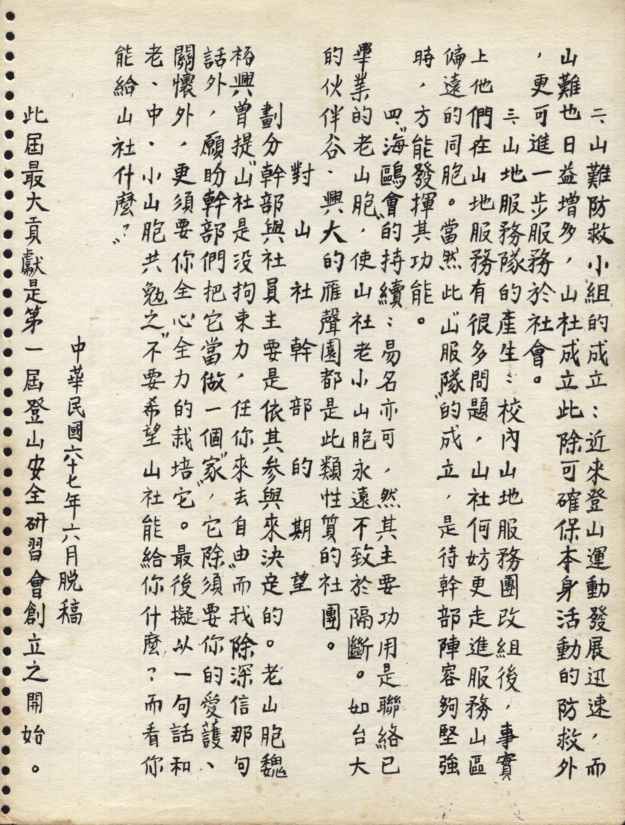 二、山難防救小組的成立：近來登山運動發展迅速，而
山難也日益增多，山社成立此除可確保本身活動的防救外
，更可進一步服務於社會。
三、山地服務隊的產生：校內山地服務團改組後，事實
上他們在山地服務有很多問題，山社何妨更走進服務山區
偏遠的同胞。當然此"山服隊"的成立，是待幹部陣容夠堅強
時，方能發揮其功能。
四、"海鷗會"的持續：易名亦可，然其主要功用是聯絡已
畢業的老山胞，使山社老小山胞永遠不致於隔斷。如台大
的伙伴谷、興大的雁聲園都是此類性質的社團。
對山社幹部的期望
劃分幹部與社員主要是依其參與來決定的。老山胞魏
裕興曾提"山社是沒拘束力，任你來去自由"而我除深信那句
話外，願盼幹部們把它當做一個"家"，它除須要你的愛護、
關懷外，更須要你全心全力的栽培它。最後擬以一句話和
老、中、小山胞共勉之"不要希望山社能給你什麼？而看你
能給山社什麼？"
中華民國六十七年六月脫稿
此屆最大貢獻是第一屆登山安全研習會創立之開始。